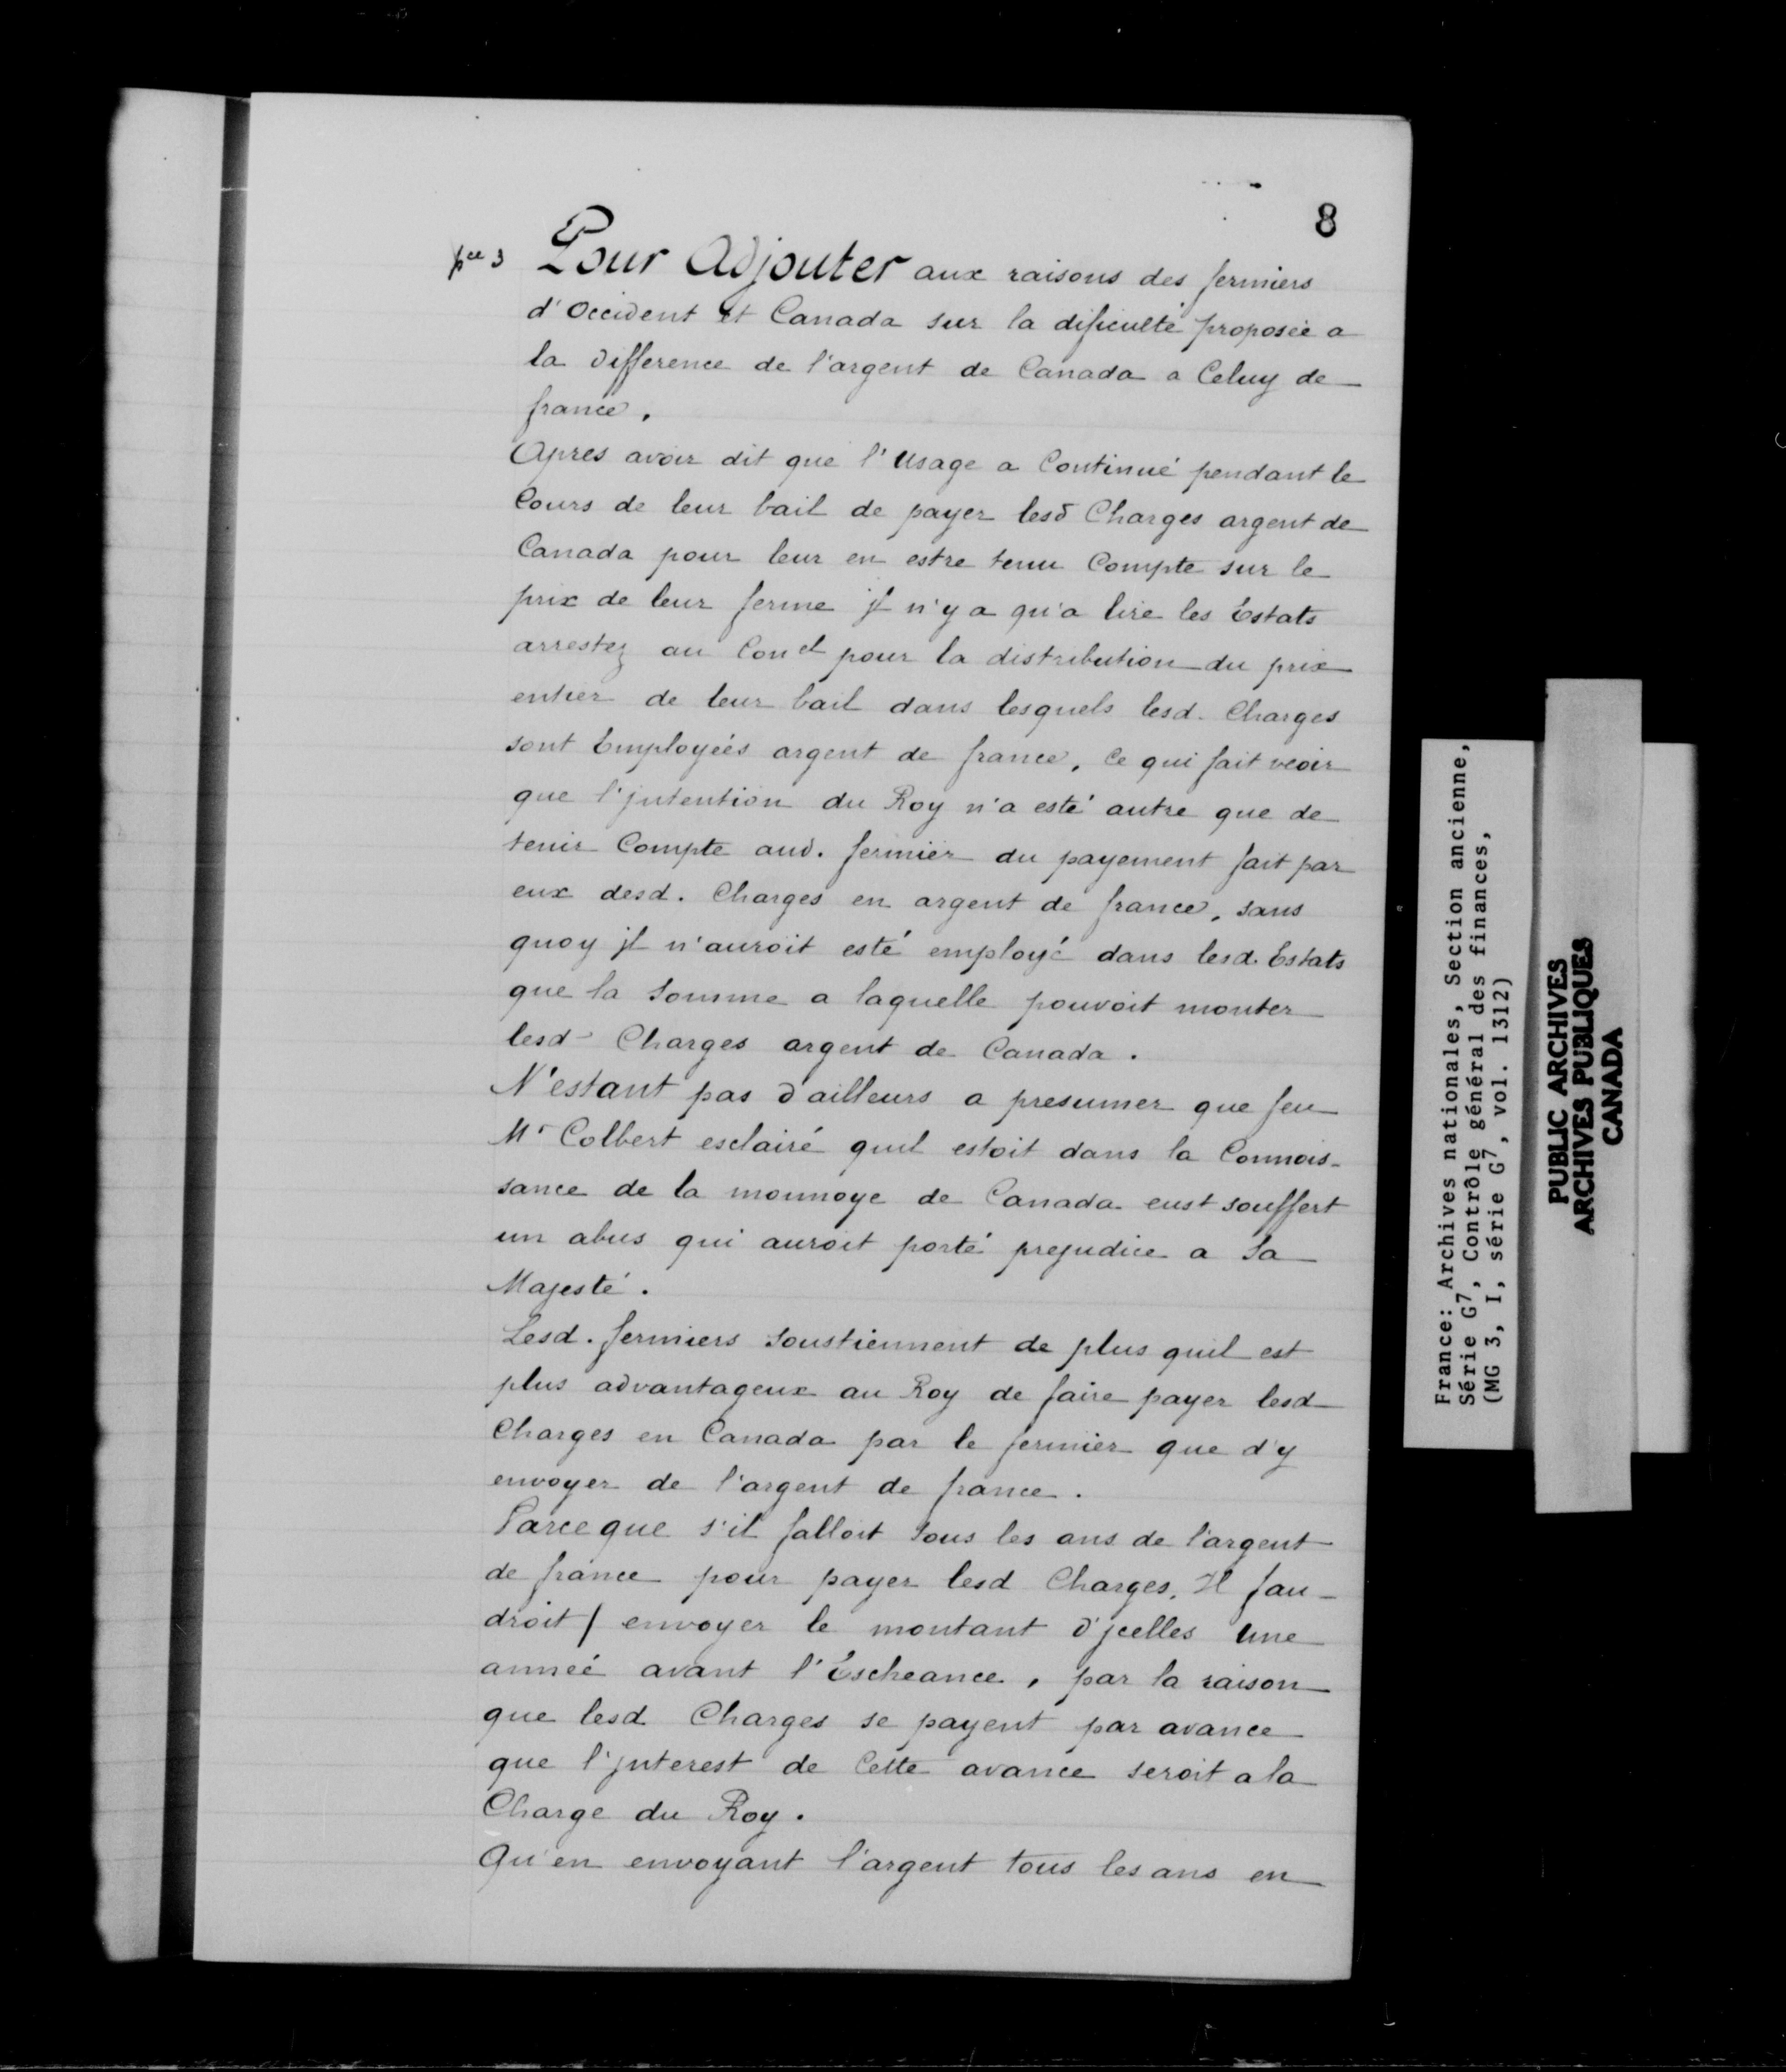 8
pce 3 Pour Adjouter aux raisons des fermiers
d'Occident et Canada sur la dificulté proposée a
la difference de l'argent de Canada a Celuy de
france.
Apres avoir dit que l'Usage a Continué pendant le
Cours de leur bail de payer lesd Charges argent de
Canada pour leur en estre tenu Compte sur le
prix de leur ferme jl n'y a qu'a lire les Estats
arrestez au Conel pour la distribution du prix
entier de leur bail dans lesquels lesd. Charges
sont Employées argent de france, Ce qui fait veoir
que l'jntention du Roy n'a esté autre que de
tenir Compte aud. fermier du payement fait par
eux desd. Charges en argent de france, sans
quoy jl n'auroit esté employé dans lesd. Estats
que la Somme a laquelle pouvoit monter
lesd Charges argent de Canada.
N'estant pas d'ailleurs a presumer que feu
Mr Colbert esclairé quil estoit dans la Connois-
sance de la monnoye de Canada eust souffert
un abus qui auroit porté prejudice a Sa
Majesté.
Lesd. fermiers soustiennent de plus quil est
plus advantageux au Roy de faire payer lesd
Charges en Canada par le fermier que d'y
envoyer de l'argent de france.
Parceque s'il falloit tous les ans de l'argent
de france pour payer lesd Charges, Il fau-
droit / envoyer le montant d'jcelles Une
année avant l'Escheance, par la raison
que lesd Charges se payent par avance
que l'jnterest de Cette avance seroit a la
Charge du Roy.
Qu'en envoyant l'argent tous les ans en
France: Archives nationales, Section ancienne,
Série G7, Contrôle général des finances,
(MG 3, I, série G7, vol. 1312)
PUBLIC ARCHIVES
ARCHIVES PUBLIQUES
CANADA